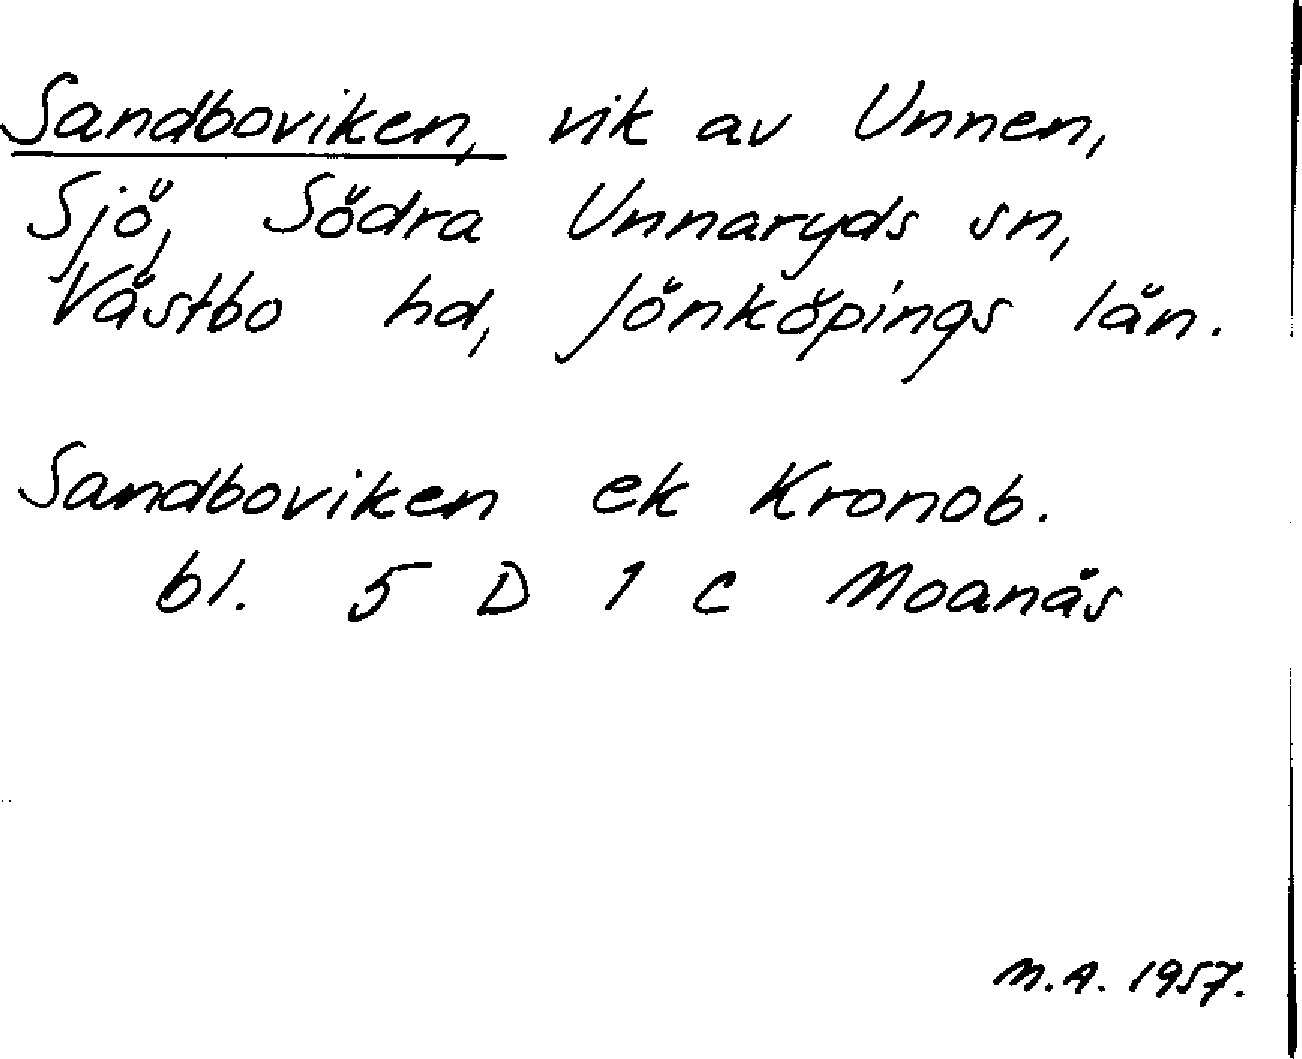 Sandboviken, vik av Unnen,
Sjö, Södra Unnaryds sn,
Västbo hd, Jönköpings län.
Sandboviken ek Kronob.
bl. 5 D 1 c Moanäs
M.A. 1957.